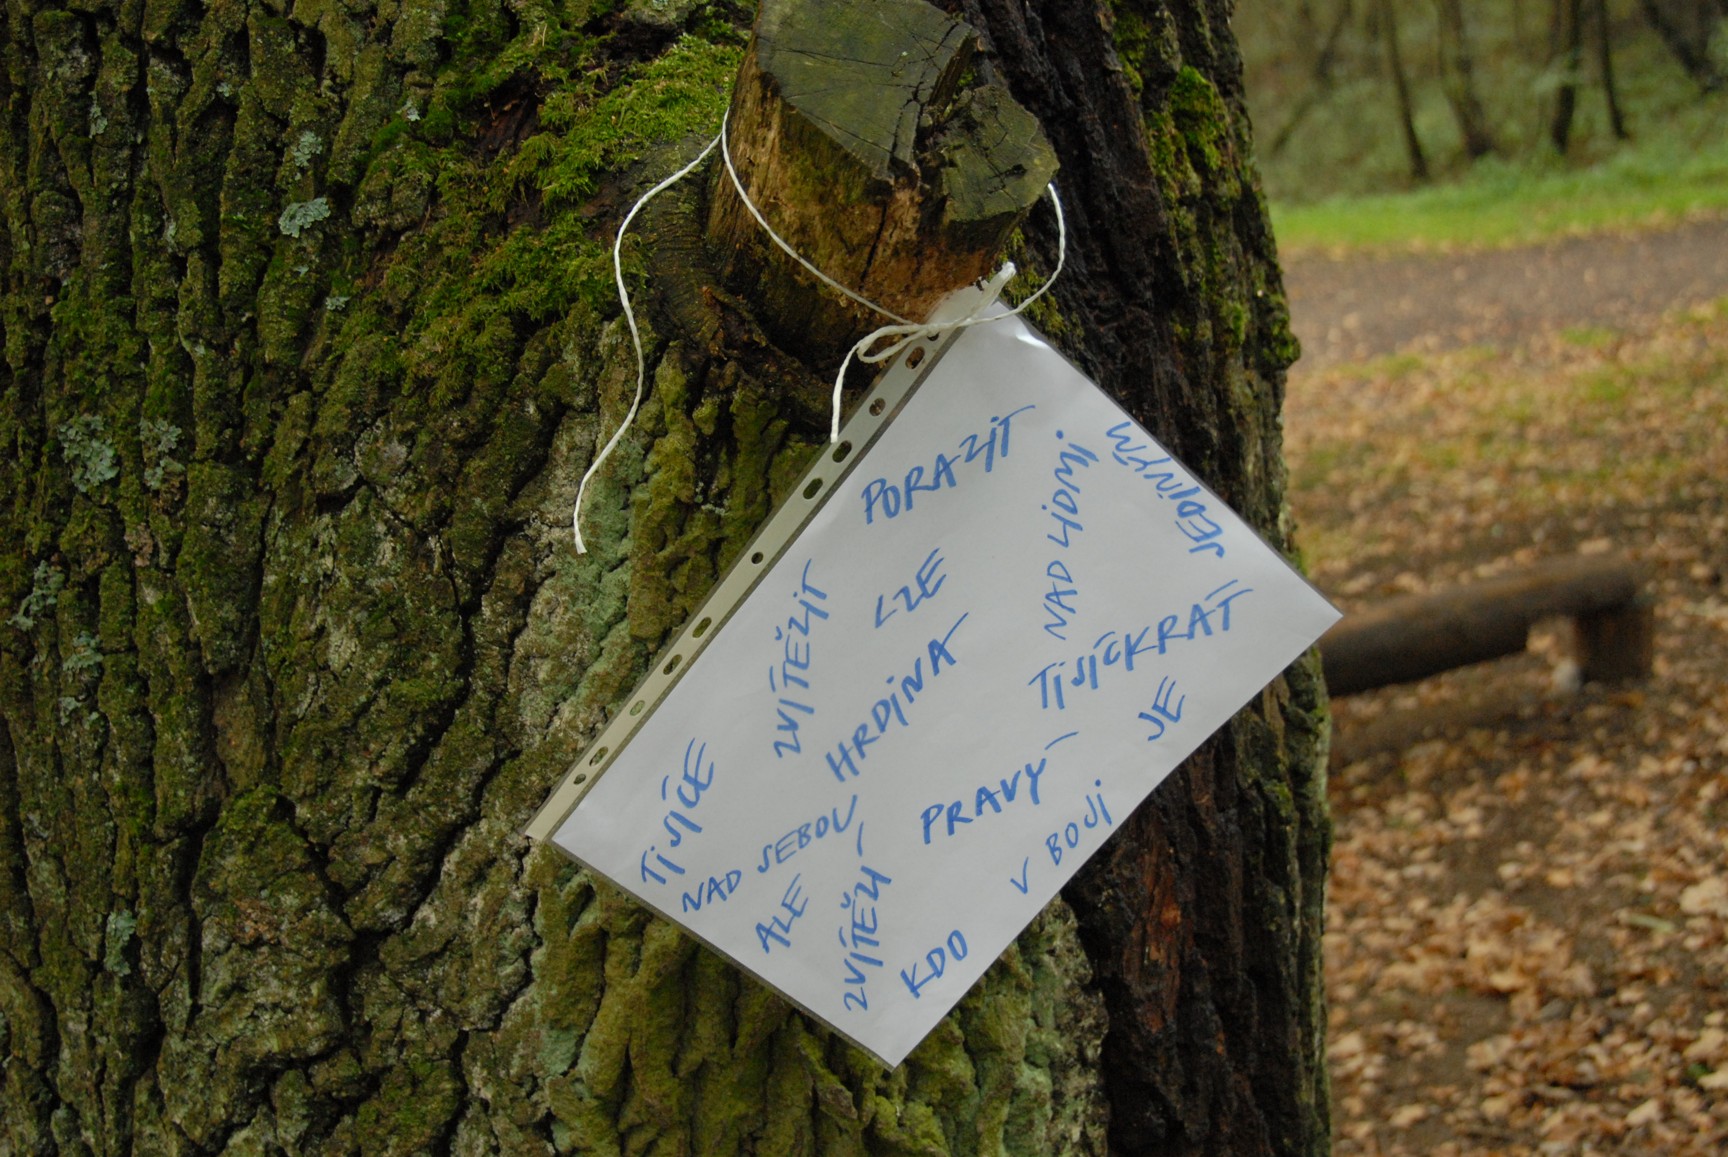 PORAZIT
NAD LIDMI
JEDINÝM
ZVÍTĚZIT
LZE
HRDINA
TISÍCKRÁT
TISÍCE
NAD SEBOU
PRAVÝ
JE
ALE
ZVÍTĚZÍ
V BOJI
KDO